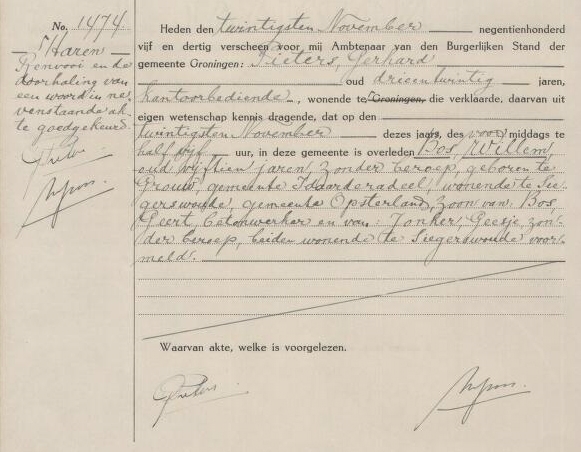 No. 1474
Haren
Renvooi en de
doorhaling van
een woord in ne-
venstaande ak-
te goedgekeurd.
Heden den twintigsten November negentienhonderd
vijf en dertig verscheen voor mij Ambtenaar van den Burgerlijken Stand der
gemeente Groningen: Pieters, Gerhard
oud drieentwintig jaren,
kantoorbediende, wonende te Groningen, die verklaarde, daarvan uit
eigen wetenschap kennis dragende, dat op den
twintigsten November dezes jaars, des voor middags te
half vijf uur, in deze gemeente is overleden Bos, Willem,
oud vijftien jaren, zonder beroep, geboren te
Grouw, gemeente Idaarderadeel, wonende te Sie-
gerswoude, gemeente Opsterland, zoon van Bos,
Geert, betonwerker en van: Jonker, Geesje, zon-
der beroep, beiden wonende te Siegerswoude voor-
meld.
Waarvan akte, welke is voorgelezen.